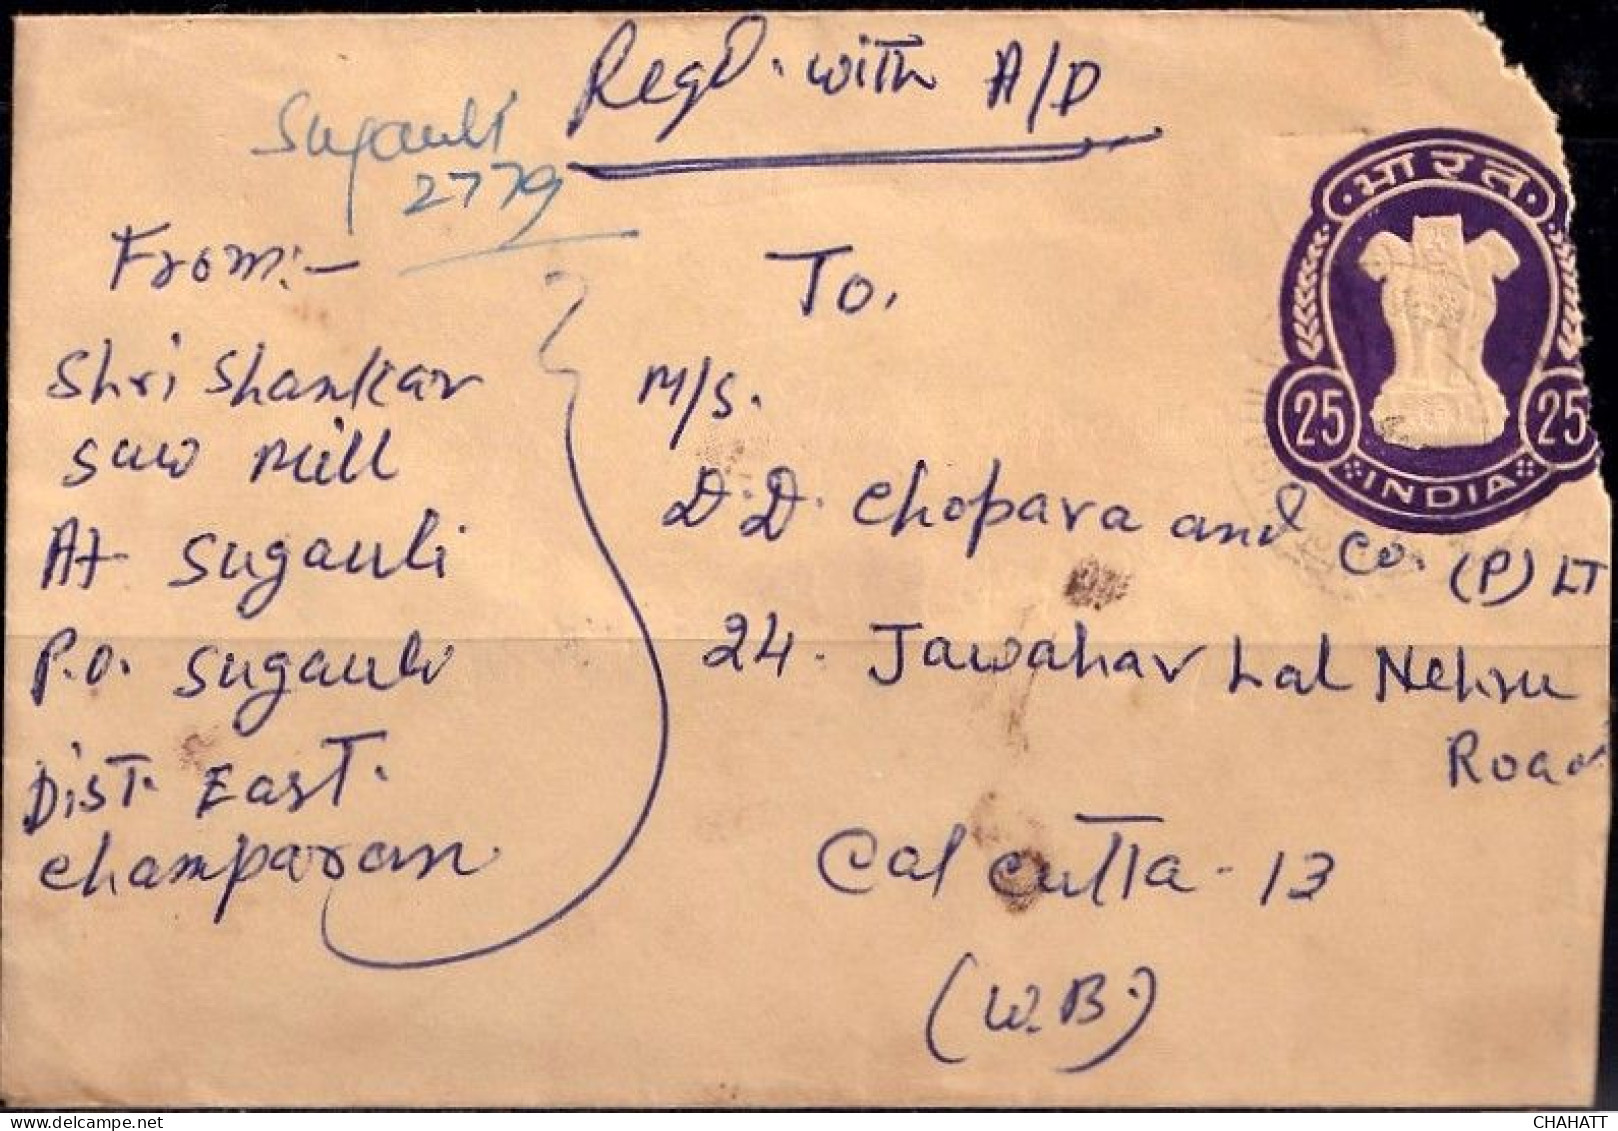 Regd. with A/D
Sugauli
2779
From:-
Shri Shankar
Saw Mill
At Sugauli
P.O. Sugauli
Dist. East.
Champaran
To,
M/s.
D.D. Chopara and Co. (P) LT
24. Jawahar Lal Nehru
Road
Calcutta-13
(W.B.)
भारत
25 25
INDIA
CHAHATT